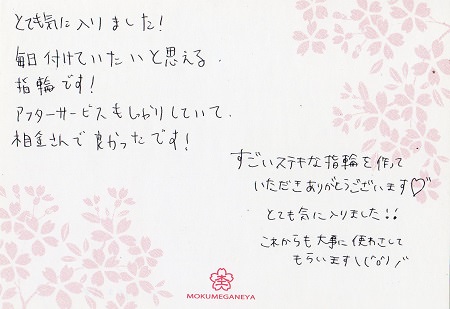 とても気に入りました!
毎日付けていたいと思える
指輪です!
アフターサービスもしっかりしていて、
杢目金さんで良かったです!
すごいステキな指輪を作って
いただきありがとうございます♡
とても気に入りました!!
これからも大事に使わさして
もらいます\(^o^)/
MOKUMEGANEYA